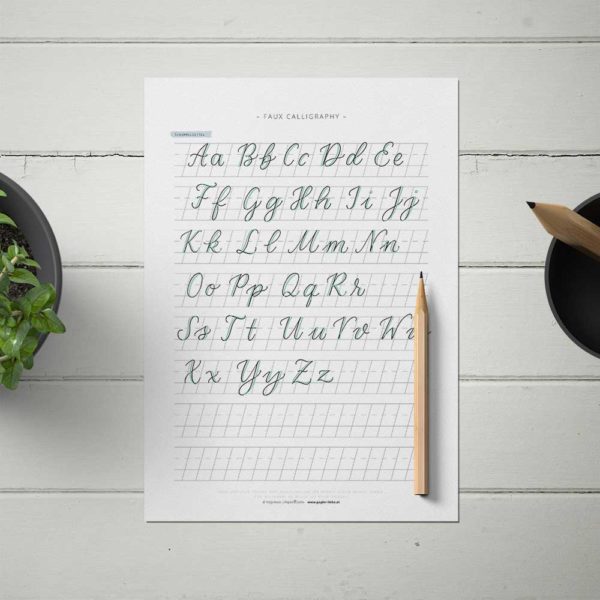 - FAUX CALLIGRAPHY -
Aa Bb Cc Dd Ee
Ff Gg Hh Ii Jj
Kk Ll Mm Nn
Oo Pp Qq Rr
Ss Tt Uu Vv W
Xx Yy Zz